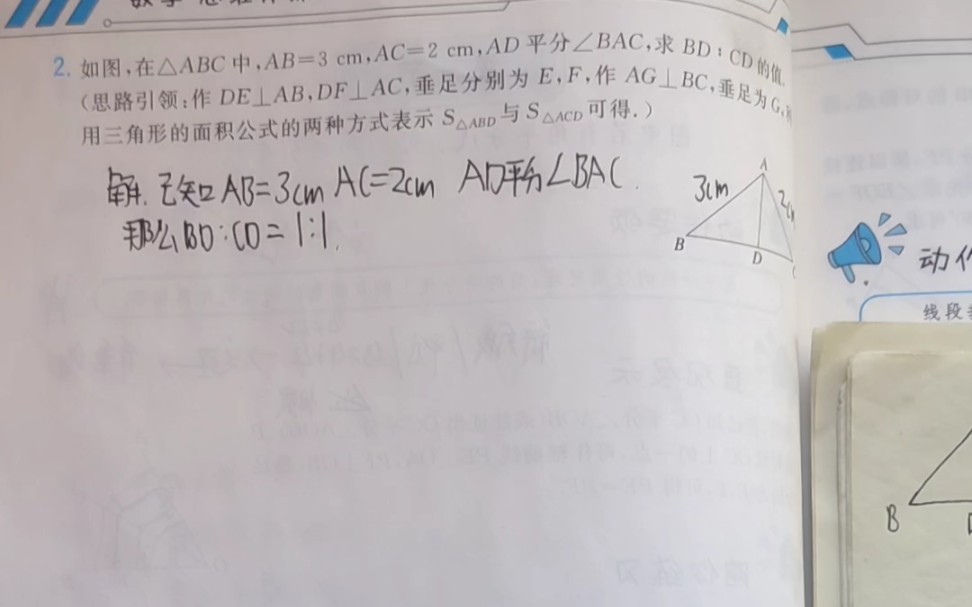 2. 如图,在△ABC 中,AB=3 cm,AC=2 cm,AD 平分∠BAC,求 BD:CD 的值.
(思路引领:作 DE⊥AB,DF⊥AC,垂足分别为 E,F,作 AG⊥BC,垂足为 G,
用三角形的面积公式的两种方式表示 S△ABD 与 S△ACD 可得.)
解. 已知 AB=3cm AC=2cm AD平分∠BAC.
那么BD:CD=1:1.
A
3cm
B
D
动作
线段
B